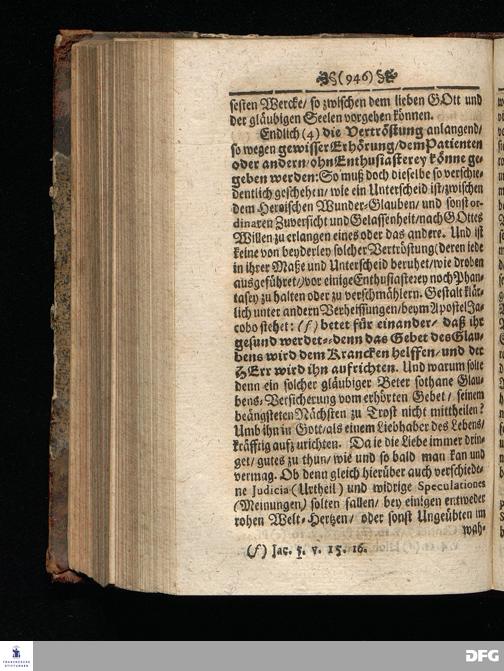 (946)
sesten Wercke/ so zwischen dem lieben GOtt und
der gläubigen Seelen vorgehen können.
Endlich (4) die Vertröstung anlangend/
so wegen gewisser Erhörung/dem Patienten
oder andern/ohn Enthusiasterey könne ge-
geben werden: So muß doch dieselbe so verschie-
dentlich geschehen/ wie ein Unterscheid ist/zwischen
dem Heroischen Wunder-Glauben/ und sonst or-
dinaren Zuversicht und Gelassenheit/nach GOttes
Willen zu erlangen eines oder das andere. Und ist
keine von beyderley solcher Vertröstung(deren jede
in ihrer Maße und Unterscheid beruhet/wie droben
ausgeführet/)vor einige Enthusiasterey noch Phan-
tasey zu halten oder zu verschmählern. Gestalt klär-
lich unter andern Verheissungen/beym Apostel Ja-
cobo stehet: (f) betet für einander/ daß ihr
gesund werdet--denn das Gebet des Glau-
bens wird dem Krancken helffen/ und der
HErr wird ihn aufrichten. Und warum solte
denn ein solcher gläubiger Beter sothane Glau-
bens-Versicherung vom erhörten Gebet/ seinem
beängsteten Nächsten zu Trost nicht mittheilen?
Umb ihn in Gott/als einem Liebhaber des Lebens/
kräfftig aufzurichten. Da ie die Liebe immer drin-
get/ gutes zu thun/ wie und so bald man kan und
vermag. Ob denn gleich hierüber auch verschiede-
ne Judicia (Urtheil) und widrige Speculationes
(Meinungen) solten fallen/ bey einigen entweder
rohen Welt-Hertzen/ oder sonst Ungeübten im
wah-
(f) Jac. 5. v. 15. 16.
FRANCKESCHE STIFTUNGEN
DFG